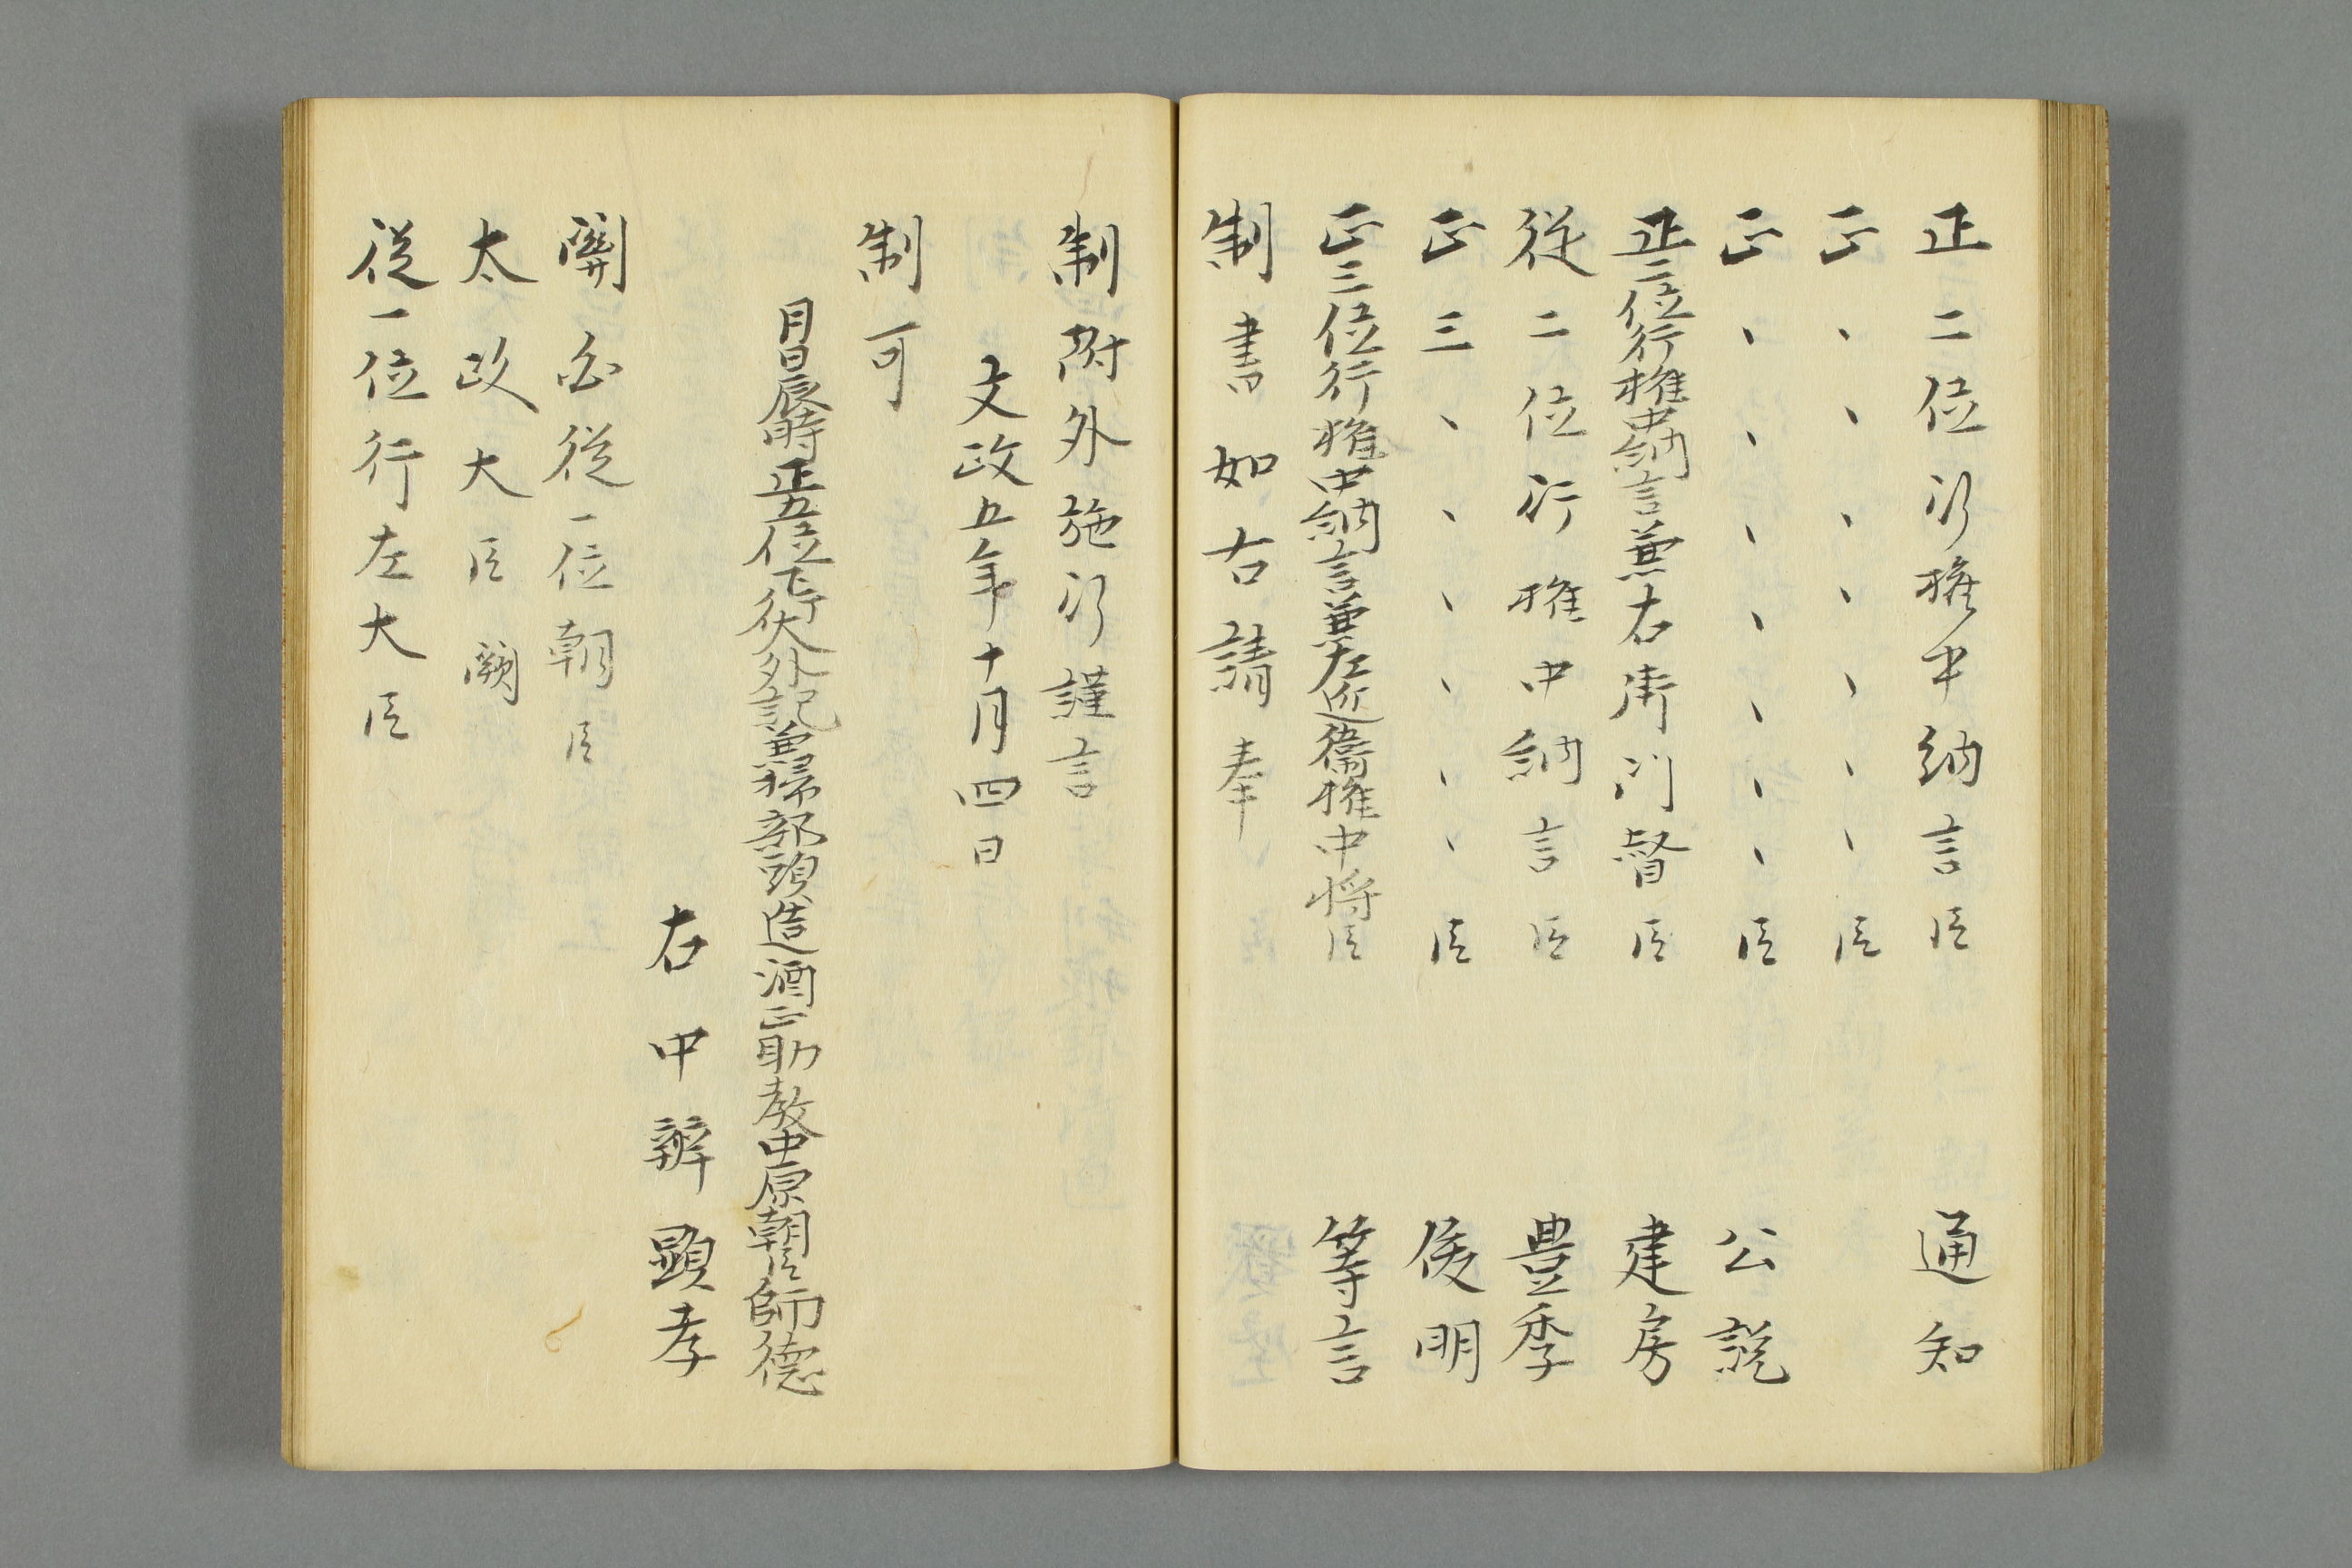 正二位行権中納言臣 通知
正、、、、、、、臣
正、、、、、、、臣 公説
正二位行権中納言兼右衛門督臣 建房
従二位行権中納言臣 豊季
正三、、、、、臣 俊明
正三位行権中納言兼左近衛権中将臣 等言
制書如右請奉
制附外施行謹言
文政五年十月四日
制可
月日辰時正五位下行大外記兼掃部頭造酒正助教中原朝臣師徳
右中辨顕孝
関白従一位朝臣
太政大臣闕
従一位行左大臣